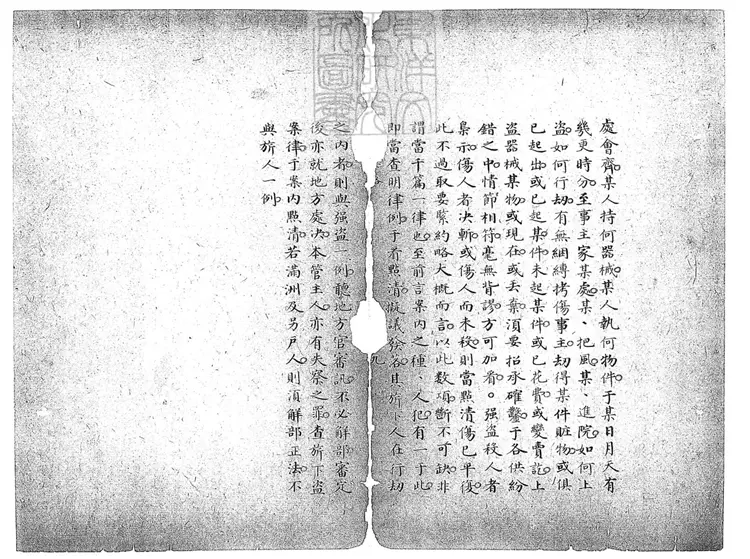 處會齊某人持何器械某人執何物件于某日月天有
幾更時分至事主家某處某、把風某、進院如何上
盜如何行刼有無綑縛拷傷事主刼得某件贓物或俱
已起出或已起某件未起某件或已花費或變賣訖上
盜器械某物或現在或丟棄須要招承確鑿于各供紛
錯之中情節相符毫無背謬方可加看。強盜殺人者
梟示傷人者決斬或傷人而未殺則當點清傷已平復
此不過取要緊約略大概而言以此数項斷不可缺非
謂當千篇一律也至前言案內之種、人犯有一于此
即當查明律例于看點清擬議發各其旂下人在行刼
之內者則與强盜一例聽地方官審訊不必解部審完
後亦就地方處決本管主人亦有失察之罪查旂下盜
案律于案內點清若滿洲及另戶人則須解部正法不
與旂人一例